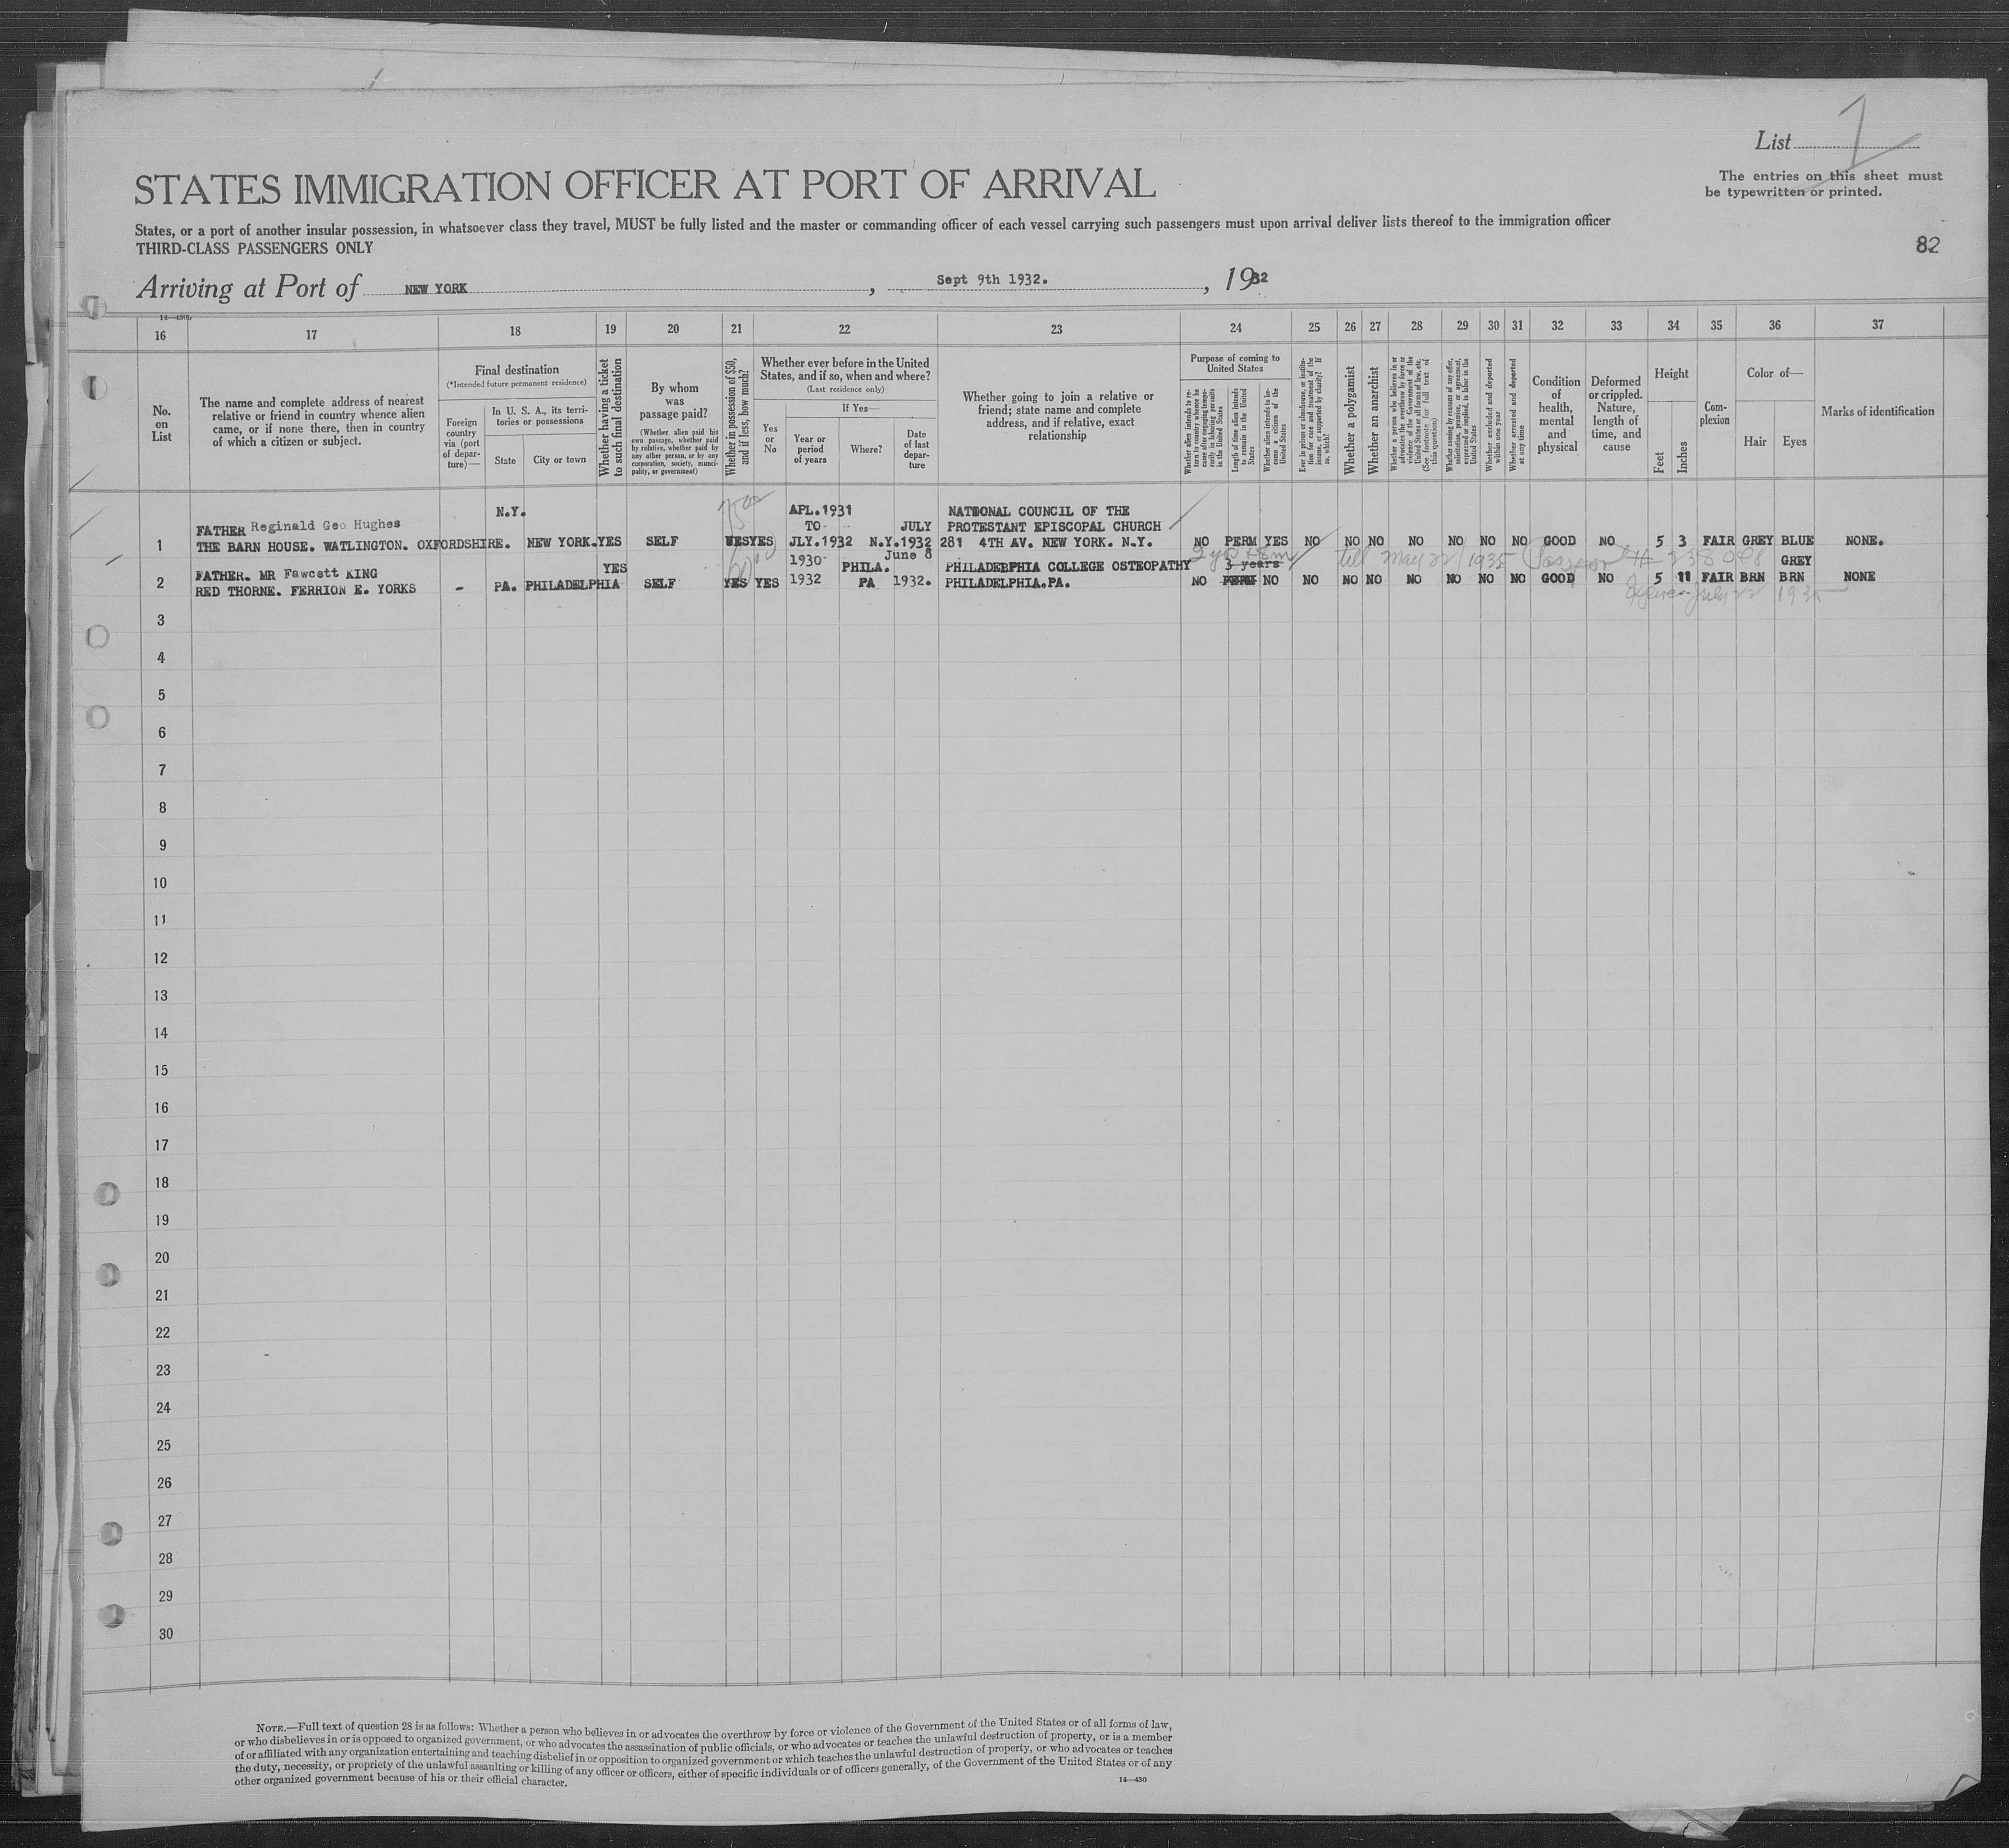 List 1
The entries on this sheet must
be typewritten or printed.
STATES IMMIGRATION OFFICER AT PORT OF ARRIVAL
States, or a port of another insular possession, in whatsoever class they travel, MUST be fully listed and the master or commanding officer of each vessel carrying such passengers must upon arrival deliver lists thereof to the immigration officer
THIRD-CLASS PASSENGERS ONLY
82
Arriving at Port of NEW YORK, Sept 9th 1932., 1932
14—430b
16 17 18 19 20 21 22 23 24 25 26 27 28 29 30 31 32 33 34 35 36 37
No.
on
List
The name and complete address of nearest
relative or friend in country whence alien
came, or if none there, then in country
of which a citizen or subject.
Final destination
(*Intended future permanent residence)
Foreign
country
via (port
of depar-
ture)—
In U. S. A., its terri-
tories or possessions
State
City or town
Whether having a ticket
to such final destination
By whom
was
passage paid?
(Whether alien paid his
own passage, whether paid
by relative, whether paid by
any other person, or by any
corporation, society, munici-
pality, or government)
Whether in possession of $50,
and if less, how much?
Whether ever before in the United
States, and if so, when and where?
(Last residence only)
Yes
or
No
If Yes—
Year or
period
of years
Where?
Date
of last
depar-
ture
Whether going to join a relative or
friend; state name and complete
address, and if relative, exact
relationship
Purpose of coming to
United States
Whether alien intends to re-
turn to country whence he
came after engaging tempo-
rarily in laboring pursuits
in the United States
Length of time alien intends
to remain in the United
States
Whether alien intends to be-
come a citizen of the
United States
Ever in prison or almshouse, or institu-
tion for care and treatment of the
insane, or supported by charity? If
so, which?
Whether a polygamist
Whether an anarchist
Whether a person who believes in or
advocates the overthrow by force or
violence of the Government of the
United States or all forms of law, etc.
(See footnote for full text of
this question)
Whether coming by reason of any offer,
solicitation, promise, or agreement,
expressed or implied, to labor in the
United States
Whether excluded and deported
within one year
Whether arrested and deported
at any time
Condition
of
health,
mental
and
physical
Deformed
or crippled.
Nature,
length of
time, and
cause
Height
Feet
Inches
Com-
plexion
Color of—
Hair
Eyes
Marks of identification
N.Y. APL.1931 NATIONAL COUNCIL OF THE
FATHER Reginald Geo Hughes TO JULY PROTESTANT EPISCOPAL CHURCH
1 THE BARN HOUSE. WATLINGTON. OXFORDSHIRE. NEW YORK. YES SELF YES YES JLY.1932 N.Y. 1932 281 4TH AV. NEW YORK. N.Y. NO PERM YES NO NO NO NO NO NO NO GOOD NO 5 3 FAIR GREY BLUE NONE.
2 yrs + 8m till May 22 1935 Passport # 238098
YES 1930- PHILA. June 8 PHILADEBPHIA COLLEGE OSTEOPATHY 3 years GREY
FATHER. MR Fawcett KING
2 RED THORNE. FERRION E. YORKS - PA. PHILADELPHIA SELF YES YES 1932 PA 1932. PHILADELPHIA.PA. NO PERM NO NO NO NO NO NO NO NO GOOD NO 5 11 FAIR BRN BRN NONE
Expires July 22 1935
3
4
5
6
7
8
9
10
11
12
13
14
15
16
17
18
19
20
21
22
23
24
25
26
27
28
29
30
NOTE.—Full text of question 28 is as follows: Whether a person who believes in or advocates the overthrow by force or violence of the Government of the United States or of all forms of law,
or who disbelieves in or is opposed to organized government, or who advocates the assassination of public officials, or who advocates or teaches the unlawful destruction of property, or is a member
of or affiliated with any organization entertaining and teaching disbelief in or opposition to organized government or which teaches the unlawful destruction of property, or who advocates or teaches
the duty, necessity, or propriety of the unlawful assaulting or killing of any officer or officers, either of specific individuals or of officers generally, of the Government of the United States or of any
other organized government because of his or their official character.
14—430